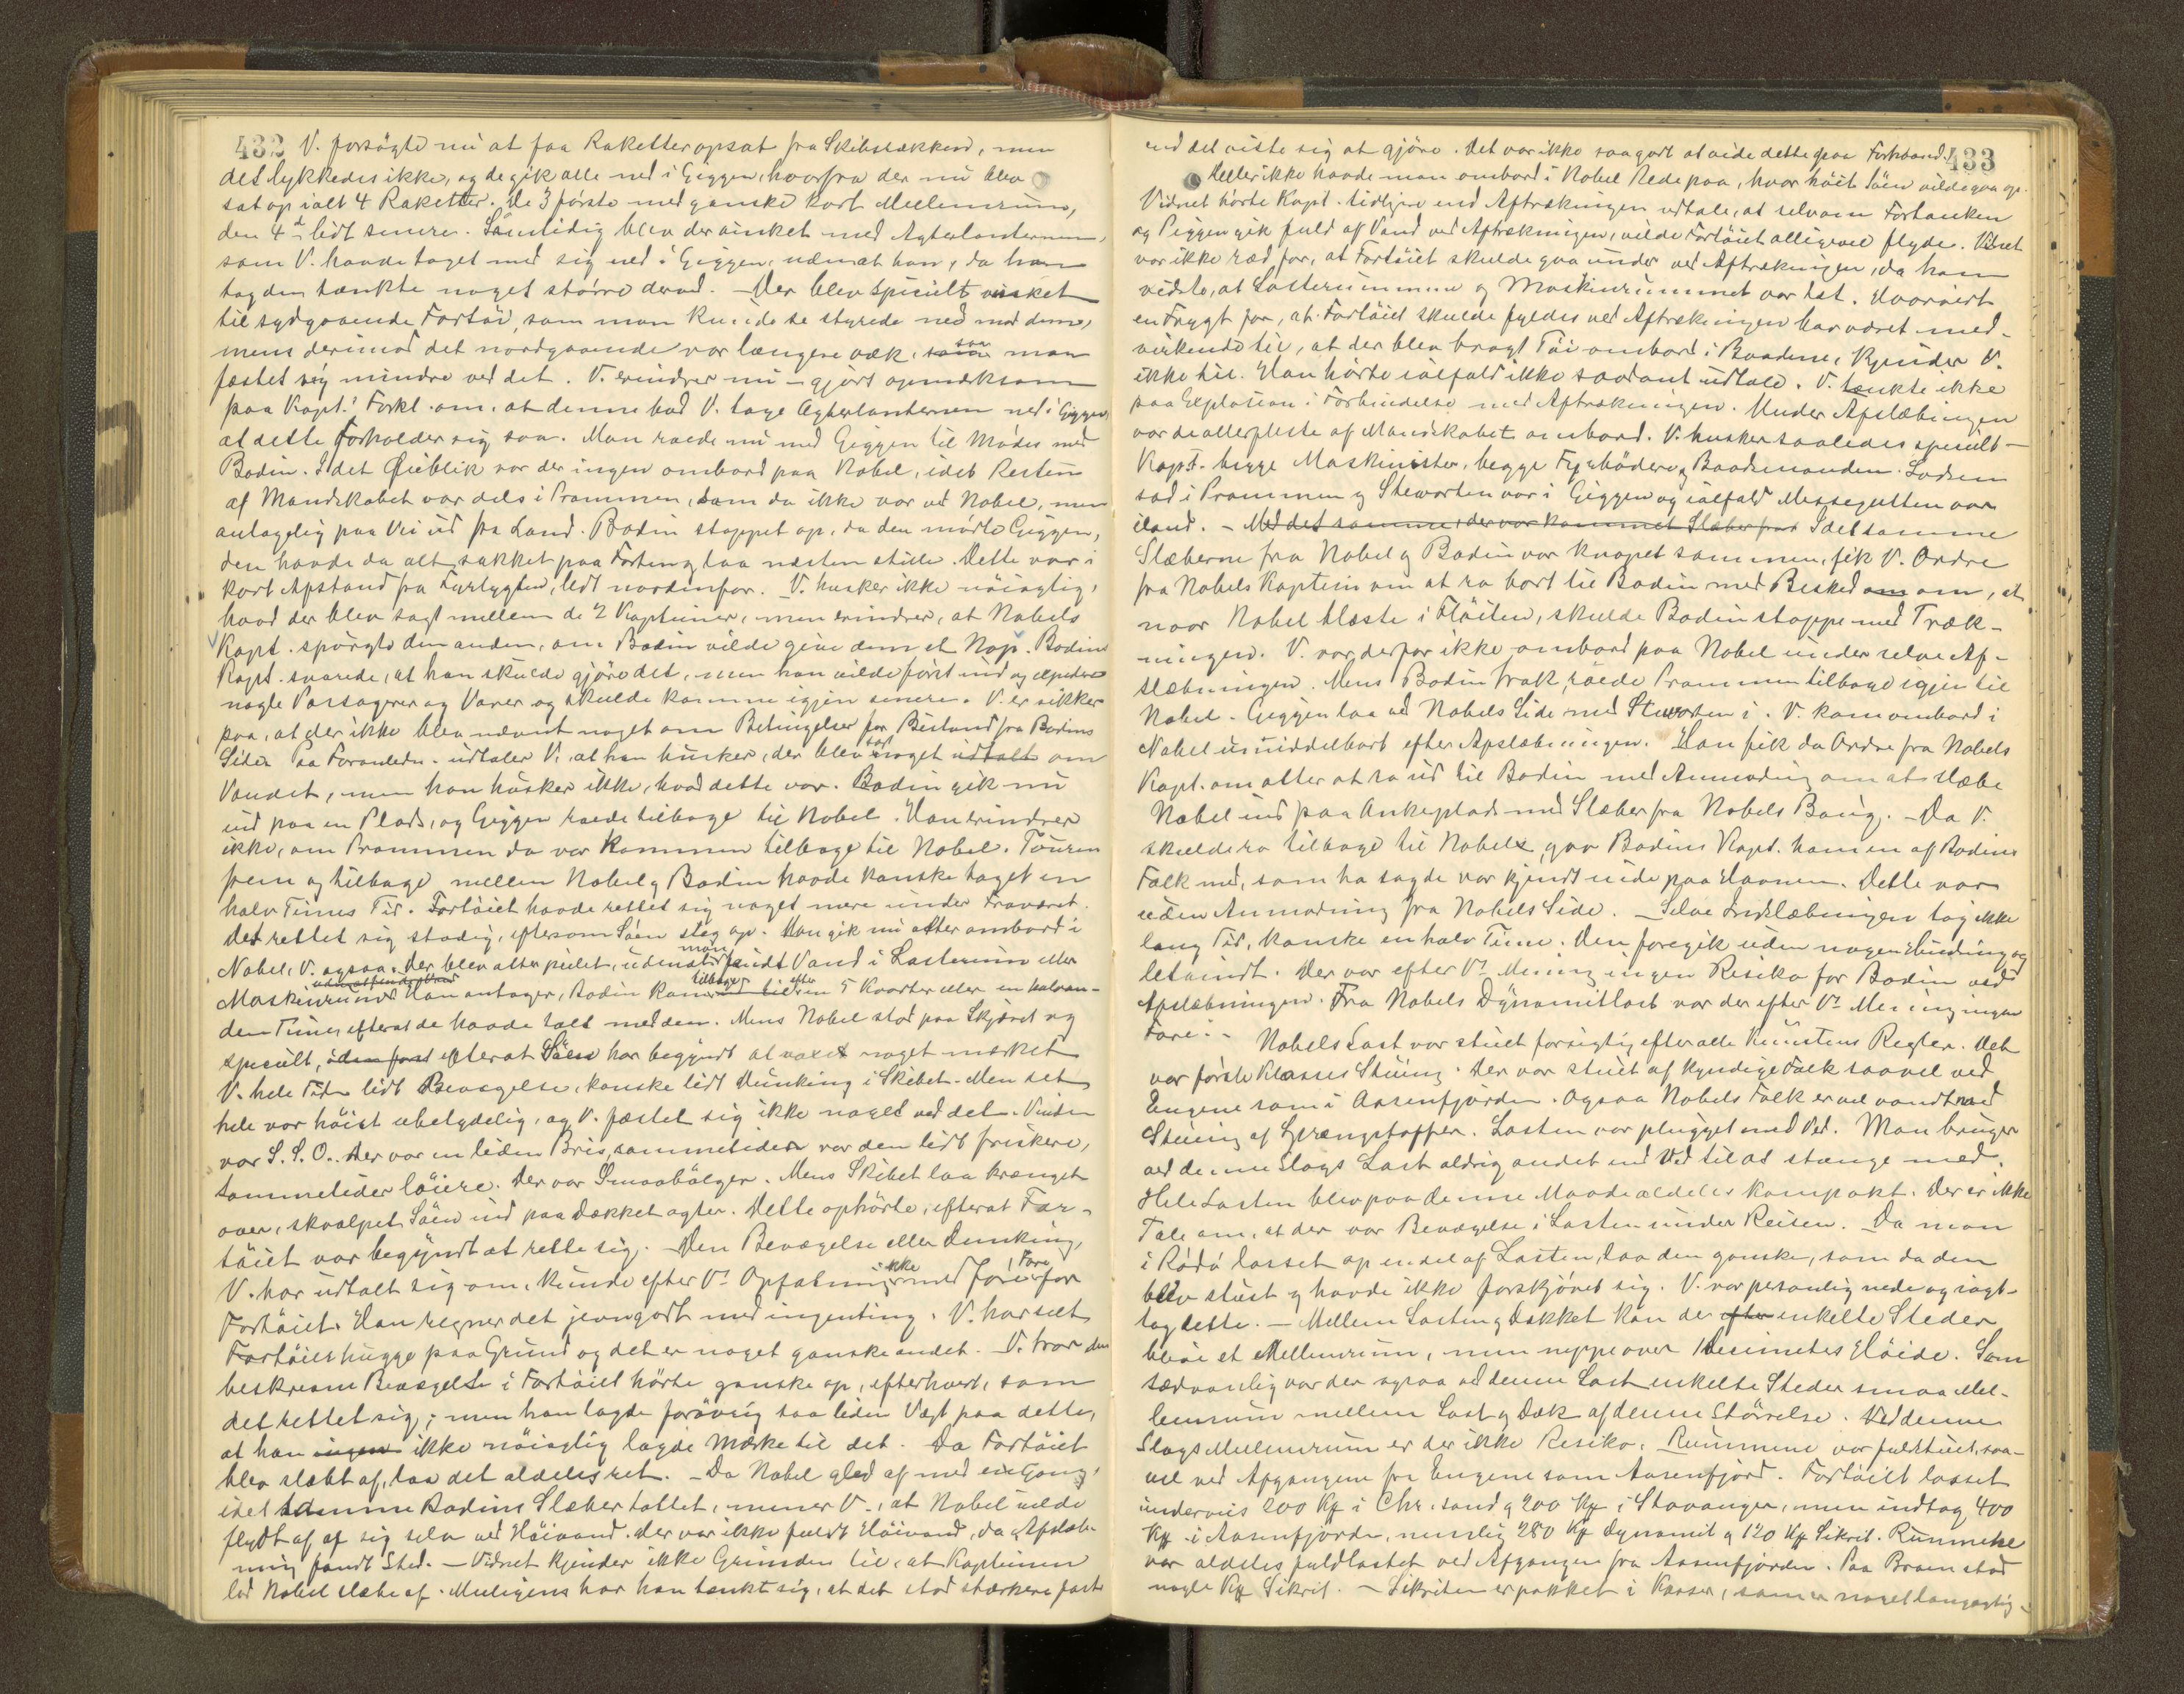 432 V. forsögte nu at faa Raketter opsat fra Skibsdækket, men
det lykkedes ikke, og de gik alle ned i Giggen, hvorfra der nu blev
sat op ialt 4 Raketter. De 3 förste med ganske kort Mellemrum,
den 4de lidt senere. Samtidig blev der vinket med Agterlanternen,
som V. havde taget med sig ned i Giggen, uden at han, da han
tog den tænkte noget större derved. - Der blev specielt vinket
til sydgaaende Fartöi, som man kunde se styrede ned mod dem,
mens derimod det nordgaaende var længere væk, saa man
fæstet sig mindre ved det. V. erindrer nu - gjort opmærksom
paa Kapt.s Forkl. om, at denne bad V. tage Agterlanternen ned i Giggen
at dette forholder sig saa. Man roede nu med Giggen til Mödes med
Bodin. I det Öieblik var der ingen ombord paa Nobel, idet Resten
af Mandskabet var dels i Prammen, som da ikke var ved Nobel, men
antagelig paa Vei ud fra Land. Bodin stoppet op, da den mödte Giggen,
den havde da alt sakket paa Farten og laa næsten stille. Dette var i
kort Afstand fra Fyrlygten, lidt nordenfor. V. husker ikke nöiagtig,
hvad der blev sagt mellem de 2 Kapteiner, men erindrer, at Nobels
Kapt. spurgte den anden, om Bodin vilde give dem et Nap. Bodins
Kapt. svarede, at han skulde gjöre det, men han vilde först ind og expedere
nogle Passagerer og Varer og skulde komme igjen senere. V. er sikker
paa, at der ikke blev nævnt noget om Betingelser for Bistand fra Bodins
Side. Paa Foranledn. udtaler V., at han husker, der blev sagt noget udtalt om
Vandet, men han husker ikke, hvad dette var. Bodin gik nu
ind paa en Plads, og Giggen roede tilbage til Nobel. Han erindrer
ikke, om Prammen da var kommen tilbage til Nobel. Touren
frem og tilbage mellem Nobel og Bodin havde kanske taget en
halv Times Tid. Fartöiet havde rettet sig noget mere under Fraværet.
Det rettet sig stadig, eftersom Söen steg op. Man gik nu atter ombord i
Nobel, V. ogsaa. Der blev atter peilet, uden at man fandt Vand i Lasterum eller
Maskinrum. Han antager, Bodin kom tilbage efter en 5 Kvarter eller en halvan-
den Times efterat de havde talt med den. Mens Nobel stod paa Skjæret og
specielt, efterat Söen har begyndt at vaxet noget mærket
V. hele Tiden lidt Bevægelse, kanske lidt Dunking i Skibet. Men det
hele var höist ubetydelig, og V. fæstet sig ikke noget ved det. Vinden
var S.S.O. Der var en liden Bris, sommetider var den lidt friskere,
sommetider löiere. Der var Smaabölger. Mens Skibet laa krænget
over, skvalpet Söen ind paa Dækket agter. Dette ophörte, efterat Far-
töiet var begyndt at rette sig. - Den Bevægelse eller Dunking,
V. har udtalt sig om, kunde efter V.s Opfatning ikke medföre Fare for
Fartöiet. Han regner det jevngodt med ingenting. V. har seet
Fartöier hugge paa Grund og det er noget ganske andet. V. tror den
beskrevne Bevægelse i Fartöiet hörte ganske op, efterhvert, som
det rettet sig; men han lagde forövrig saa liden Vægt paa dette,
at han ingen ikke nöiagtig lagde Mærke til det. Da Fartöiet
blev slæbt af, laa det aldeles ret. - Da Nobel gled af med engang,
idet samme Bodins Slæber tottet, mener V., at Nobel vilde
flydt af af sig selv ved Höivand. Der var ikke fuldt Höivand, da Afslæb-
ning fandt Sted. - Vidnet kjender ikke Grunden til, at Kapteinen
lod Nobel slæbe af. Muligens har han tænkt sig, at det stod stærkere fast
433
end det viste sig at gjöre. Det var ikke saa godt at vide dette paa Forhaand.
Heller ikke havde man ombord i Nobel Rede paa, hvor höit Söen vilde gaa op.
Vidnet hörte Kapt. tidligere end Aftrækningen udtale, at selv om Fortanken
og Piggen gik fuld af Vand ved Aftrækningen, vilde Fartöiet alligevel flyde. Vidnet
var ikke ræd for, at Fartöiet skulde gaa under ved Aftrækningen, da han
vidste, at Lasterummene og Maskinrummet var tæt. Hvorvidt
en Frygt for, at Fartöiet skulde fyldes ved Aftrækningen har været med-
virkende til, at der blev bragt Töi ombord i Baadene, kjender V.
ikke til. Han hörte ialfald ikke saadant udtale. V. tænkte ikke
paa Explosion i Forbindelse med Aftrækningen. Under Afslæbingen
var de allerfleste af Mandskabet ombord. V. husker saaledes specielt -
Kapt. begge Maskinister, begge Fyrbödere og Baadsmanden. Lodsen
sad i Prammen og Stewarten var i Giggen og ialfald Messegutten var
iland. - Med det samme, der var kommet Slæber fra I det samme
Slæberne fra Nobel og Bodin var knopet sammen, fik V. Ordre
fra Nobels Kaptein om at ro bort til Bodin med Besked om, at
naar Nobel blæste i Flöiten, skulde Bodin stoppe med Træk-
ningen. V. var derfor ikke ombord paa Nobel under selve Af-
slæbningen. Mens Bodin trak, roede Prammen tilbage igjen til
Nobel. Giggen laa ved Nobels Side med Stewarten i. V. kom ombord i
Nobel umiddelbart efter Afslæbningen. Han fik da Ordre fra Nobels
Kapt. om atter at ro ud til Bodin med Anmodning om at slæbe
Nobel ind paa Ankerplads med Slæber fra Nobels Baug. - Da V.
skulde ro tilbage til Nobel, gav Bodins Kapt. ham en af Bodins
Folk med, som ha sagde var kjendt inde paa Havnen. Dette var
uden Anmodning fra Nobels Side. - Selve Indslæbningen tog ikke
lang Tid, kanske en halv Time. Den foregik uden nogen Hindring og
letvindt. Der var efter V.s Mening ingen Risiko for Bodin ved
Afslæbningen. Fra Nobels Dynamitlast var der efter V.s Mening ingen
Fare. - Nobels Last var stuet forsigtig efter alle Kunstens Regler. Det
var förste Klasses Stuing. Der var stuet af kyndige Folk saavel ved
Engene som i Aasenfjorden. Ogsaa Nobels Folk er vel vandt med
Stuing af Sprængstoffer. Lasten var plugget med Ved. Man bruger
ved denne Slags Last aldrig andet end Ved til at stænge med.
Hele Lasten blev paa denne Maade aldeles kompakt. Der er ikke
Tale om, at der var Bevægelse i Lasten under Reisen. Da man
i Rödö losset op en del af Lasten, laa den ganske, som da den
blev stuet og havde ikke forskjövet sig. V. var personlig nede og iagt-
tog dette. - Mellem Lasten og Dækket kan der efter enkelte Steder
blive et Mellemrum, men neppe over 1 Decimeters Höide. Som
sædvanlig var der ogsaa ved denne Last enkelte Steder smaa Mel-
lemrum mellem Last og Dæk af denne Störrelse. Ved denne
Slags Mellemrum er der ikke Risiko. Rummene var fuldstuet, saa-
vel ved Afgangen fra Engene som Aasenfjord. Fartöiet losset
underveis 200 Kg i Chr.sand og 200 Kg i Stavanger, men indtog 400
Kg i Aasenfjorden, nemlig 280 Kg Dynamit og 120 Kg Sikrit. Rummene
var aldeles fuldlastet ved Afgangen fra Aasenfjorden. Paa Broen stod
nogle Kg Sikrit. - Sikriten er pakket i Kasser, som er noget langagtig-